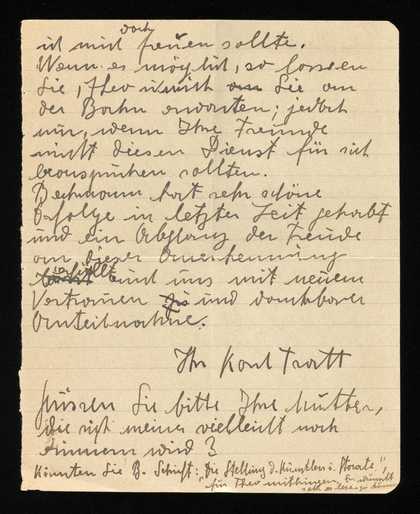 ich mich doch freuen sollte.
Wenn es möglich, so lassen
Sie, Theo u mich Sie an
der Bahn erwarten; jedoch
nur, wenn Ihre Freunde
nicht diesen Dienst für sich
beanspruchen sollten.
Beckmann hat sehr schöne
Erfolge in letzter Zeit gehabt
und ein Abglanz der Freude
an dieser Anerkennung
erfüllt uns mit neuem
Vertrauen und dankbarer
Anteilnahme.
Ihr Karl Tratt
Grüssen Sie bitte Ihre Mutter,
die sich meiner vielleicht noch
erinnern wird?
Könnten Sie B. Schrift: "Die Stellung d. Künstlers i. Staate",
für Theo mitbringen, Er wünscht
sehr es lesen zu können